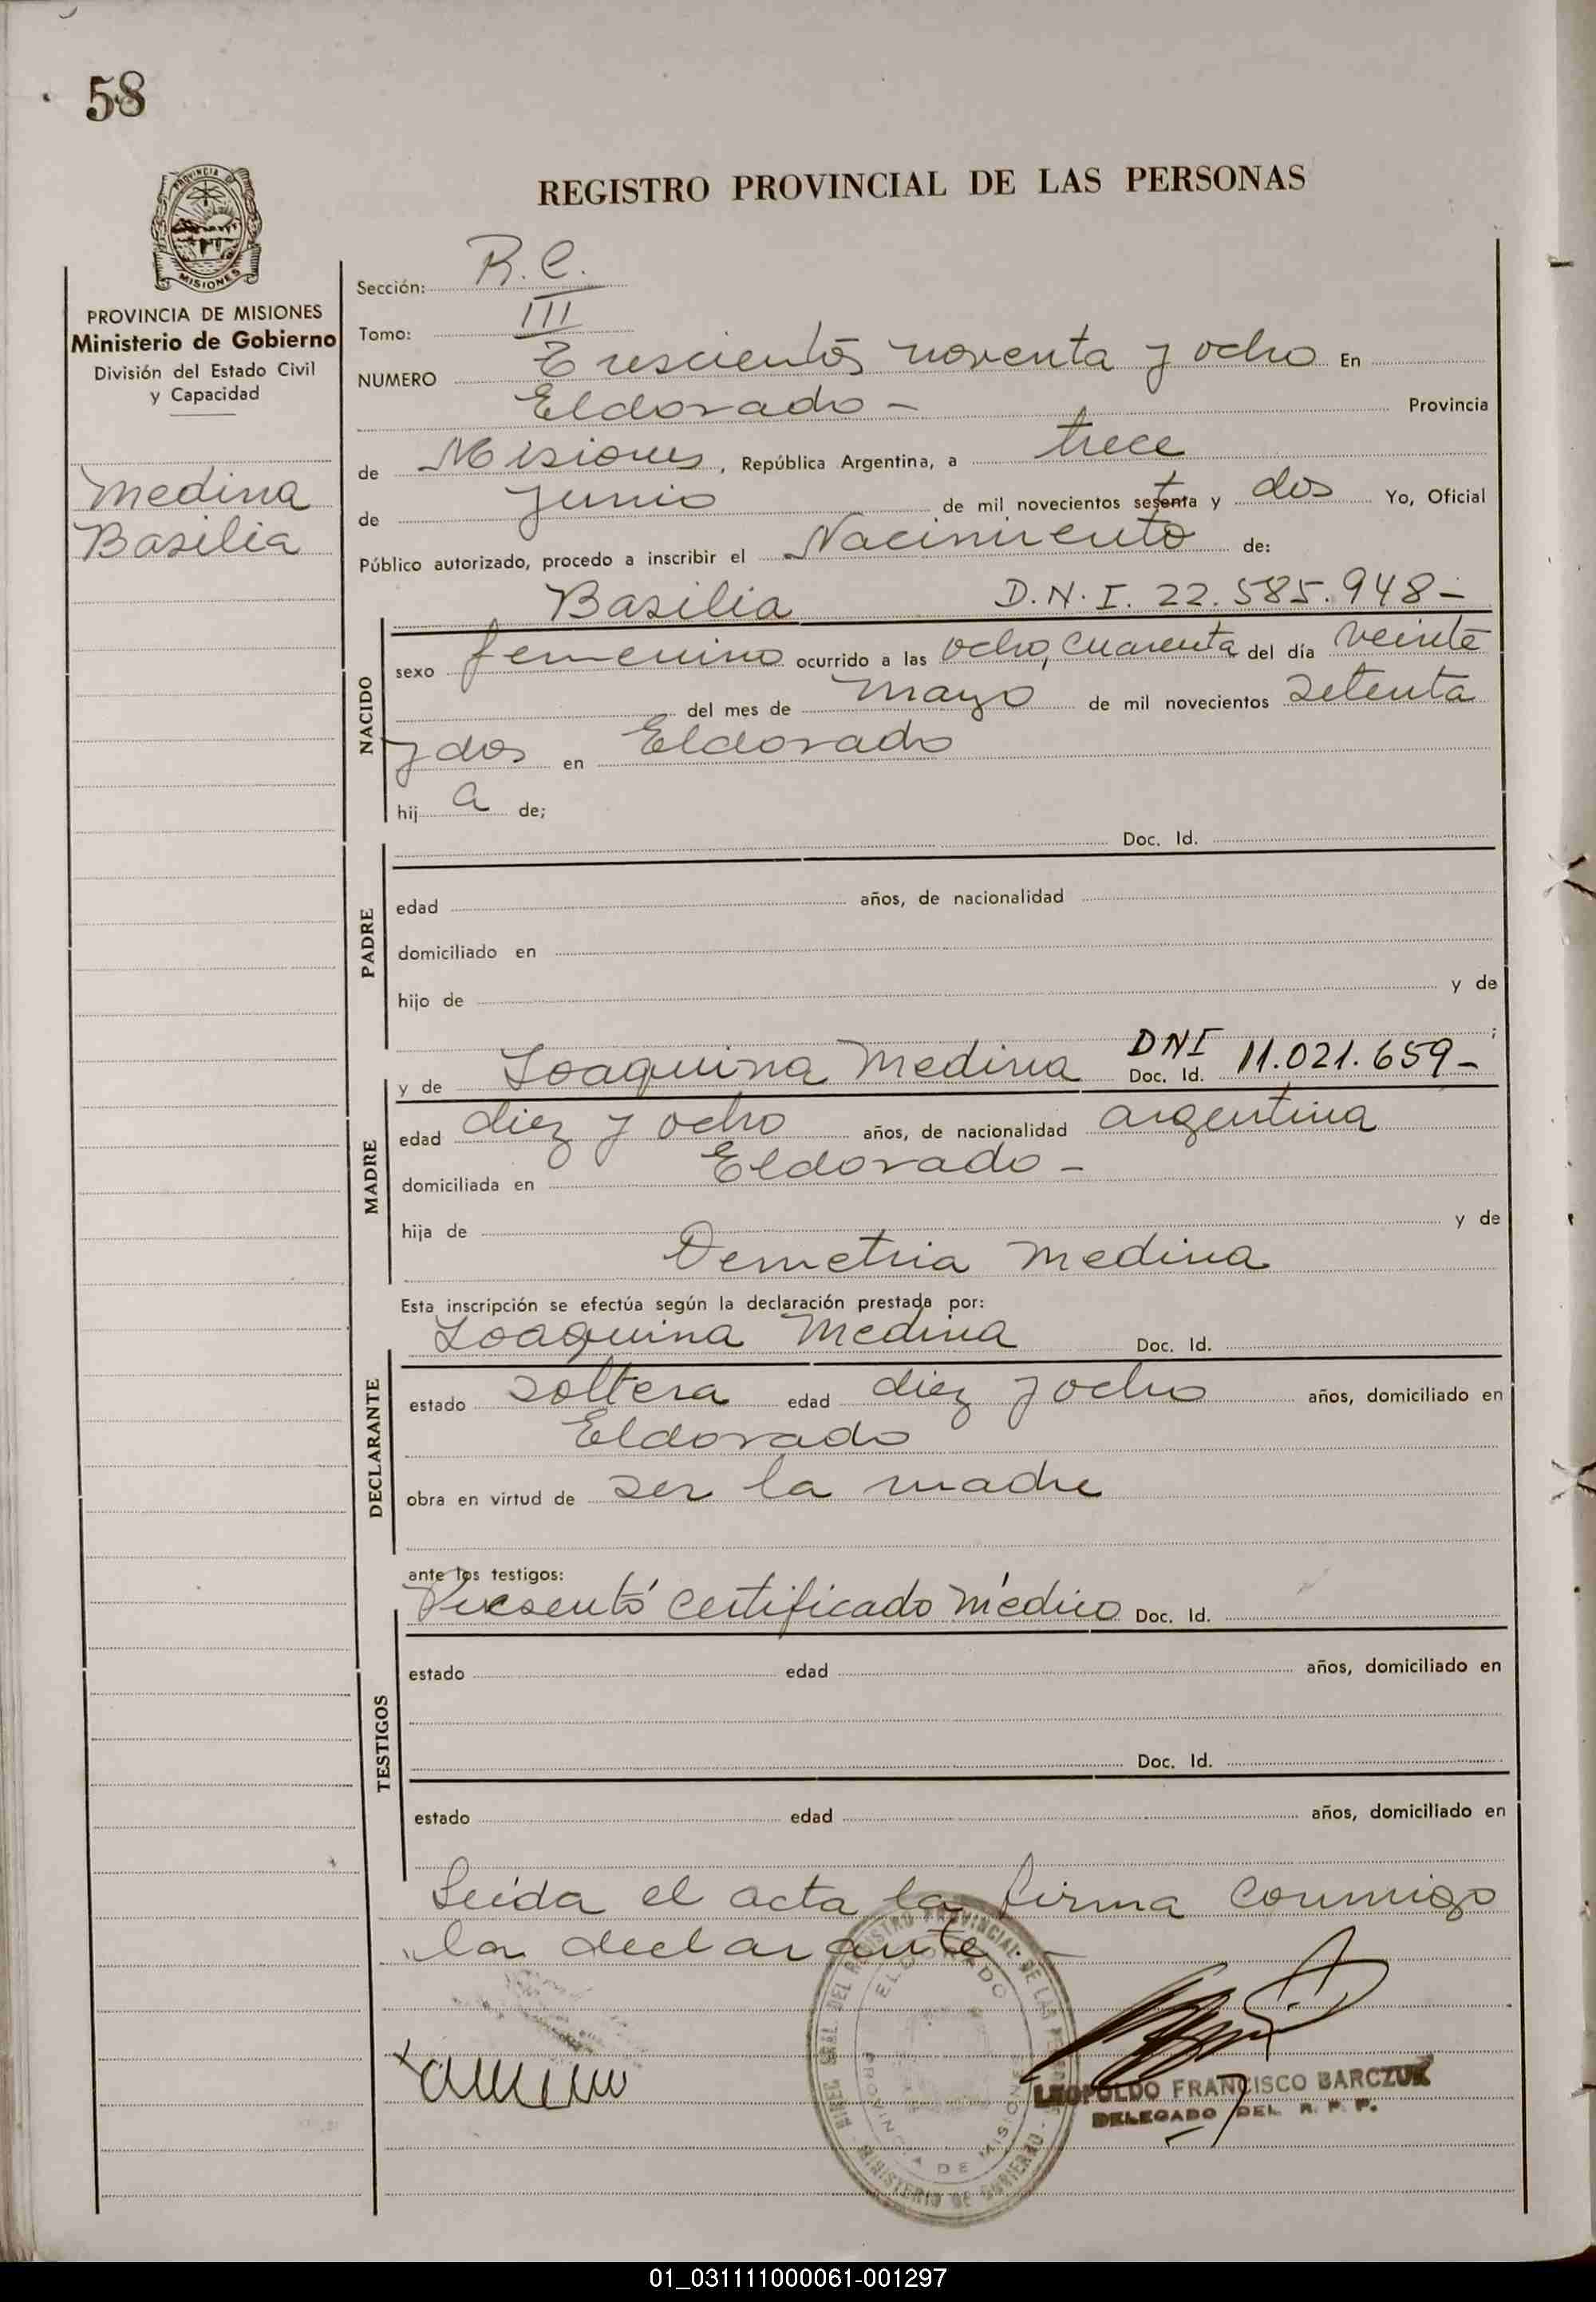 58
PROVINCIA DE
MISIONES
REGISTRO PROVINCIAL DE LAS PERSONAS
PROVINCIA DE MISIONES
Ministerio de Gobierno
División del Estado Civil
y Capacidad
Medina
Basilia
Sección: R.C.
Tomo: III
NUMERO Trescientos noventa y ocho En
Eldorado - Provincia
de Misiones, República Argentina, a trece
de Junio de mil novecientos setenta y dos Yo, Oficial
Público autorizado, procedo a inscribir el Nacimiento de:
Basilia D.N.I. 22.585.948-
NACIDO
sexo femenino ocurrido a las ocho, cuarenta del día veinte
del mes de mayo de mil novecientos setenta
y dos en Eldorado
hij a de;
Doc. Id.
PADRE
edad años, de nacionalidad
domiciliado en
hijo de y de
;
MADRE
y de Joaquina Medina DNI Doc. Id. 11.021.659-
edad diez y ocho años, de nacionalidad argentina
domiciliada en Eldorado -
hija de y de
Demetria Medina
Esta inscripción se efectúa según la declaración prestada por:
Joaquina Medina Doc. Id.
DECLARANTE
estado soltera edad diez y ocho años, domiciliado en
Eldorado
obra en virtud de ser la madre
ante los testigos:
Presentó certificado médico Doc. Id.
TESTIGOS
estado edad años, domiciliado en
Doc. Id.
estado edad años, domiciliado en
Leída el acta la firma conmigo
la declarante. -
DEL REGISTRO PROVINCIAL DE LAS
ELDORADO
PROVINCIA DE MISIONES
MINISTERIO DE GOBIERNO
LEOPOLDO FRANCISCO BARCZUK
DELEGADO DEL R. P. P.
01_031111000061-001297